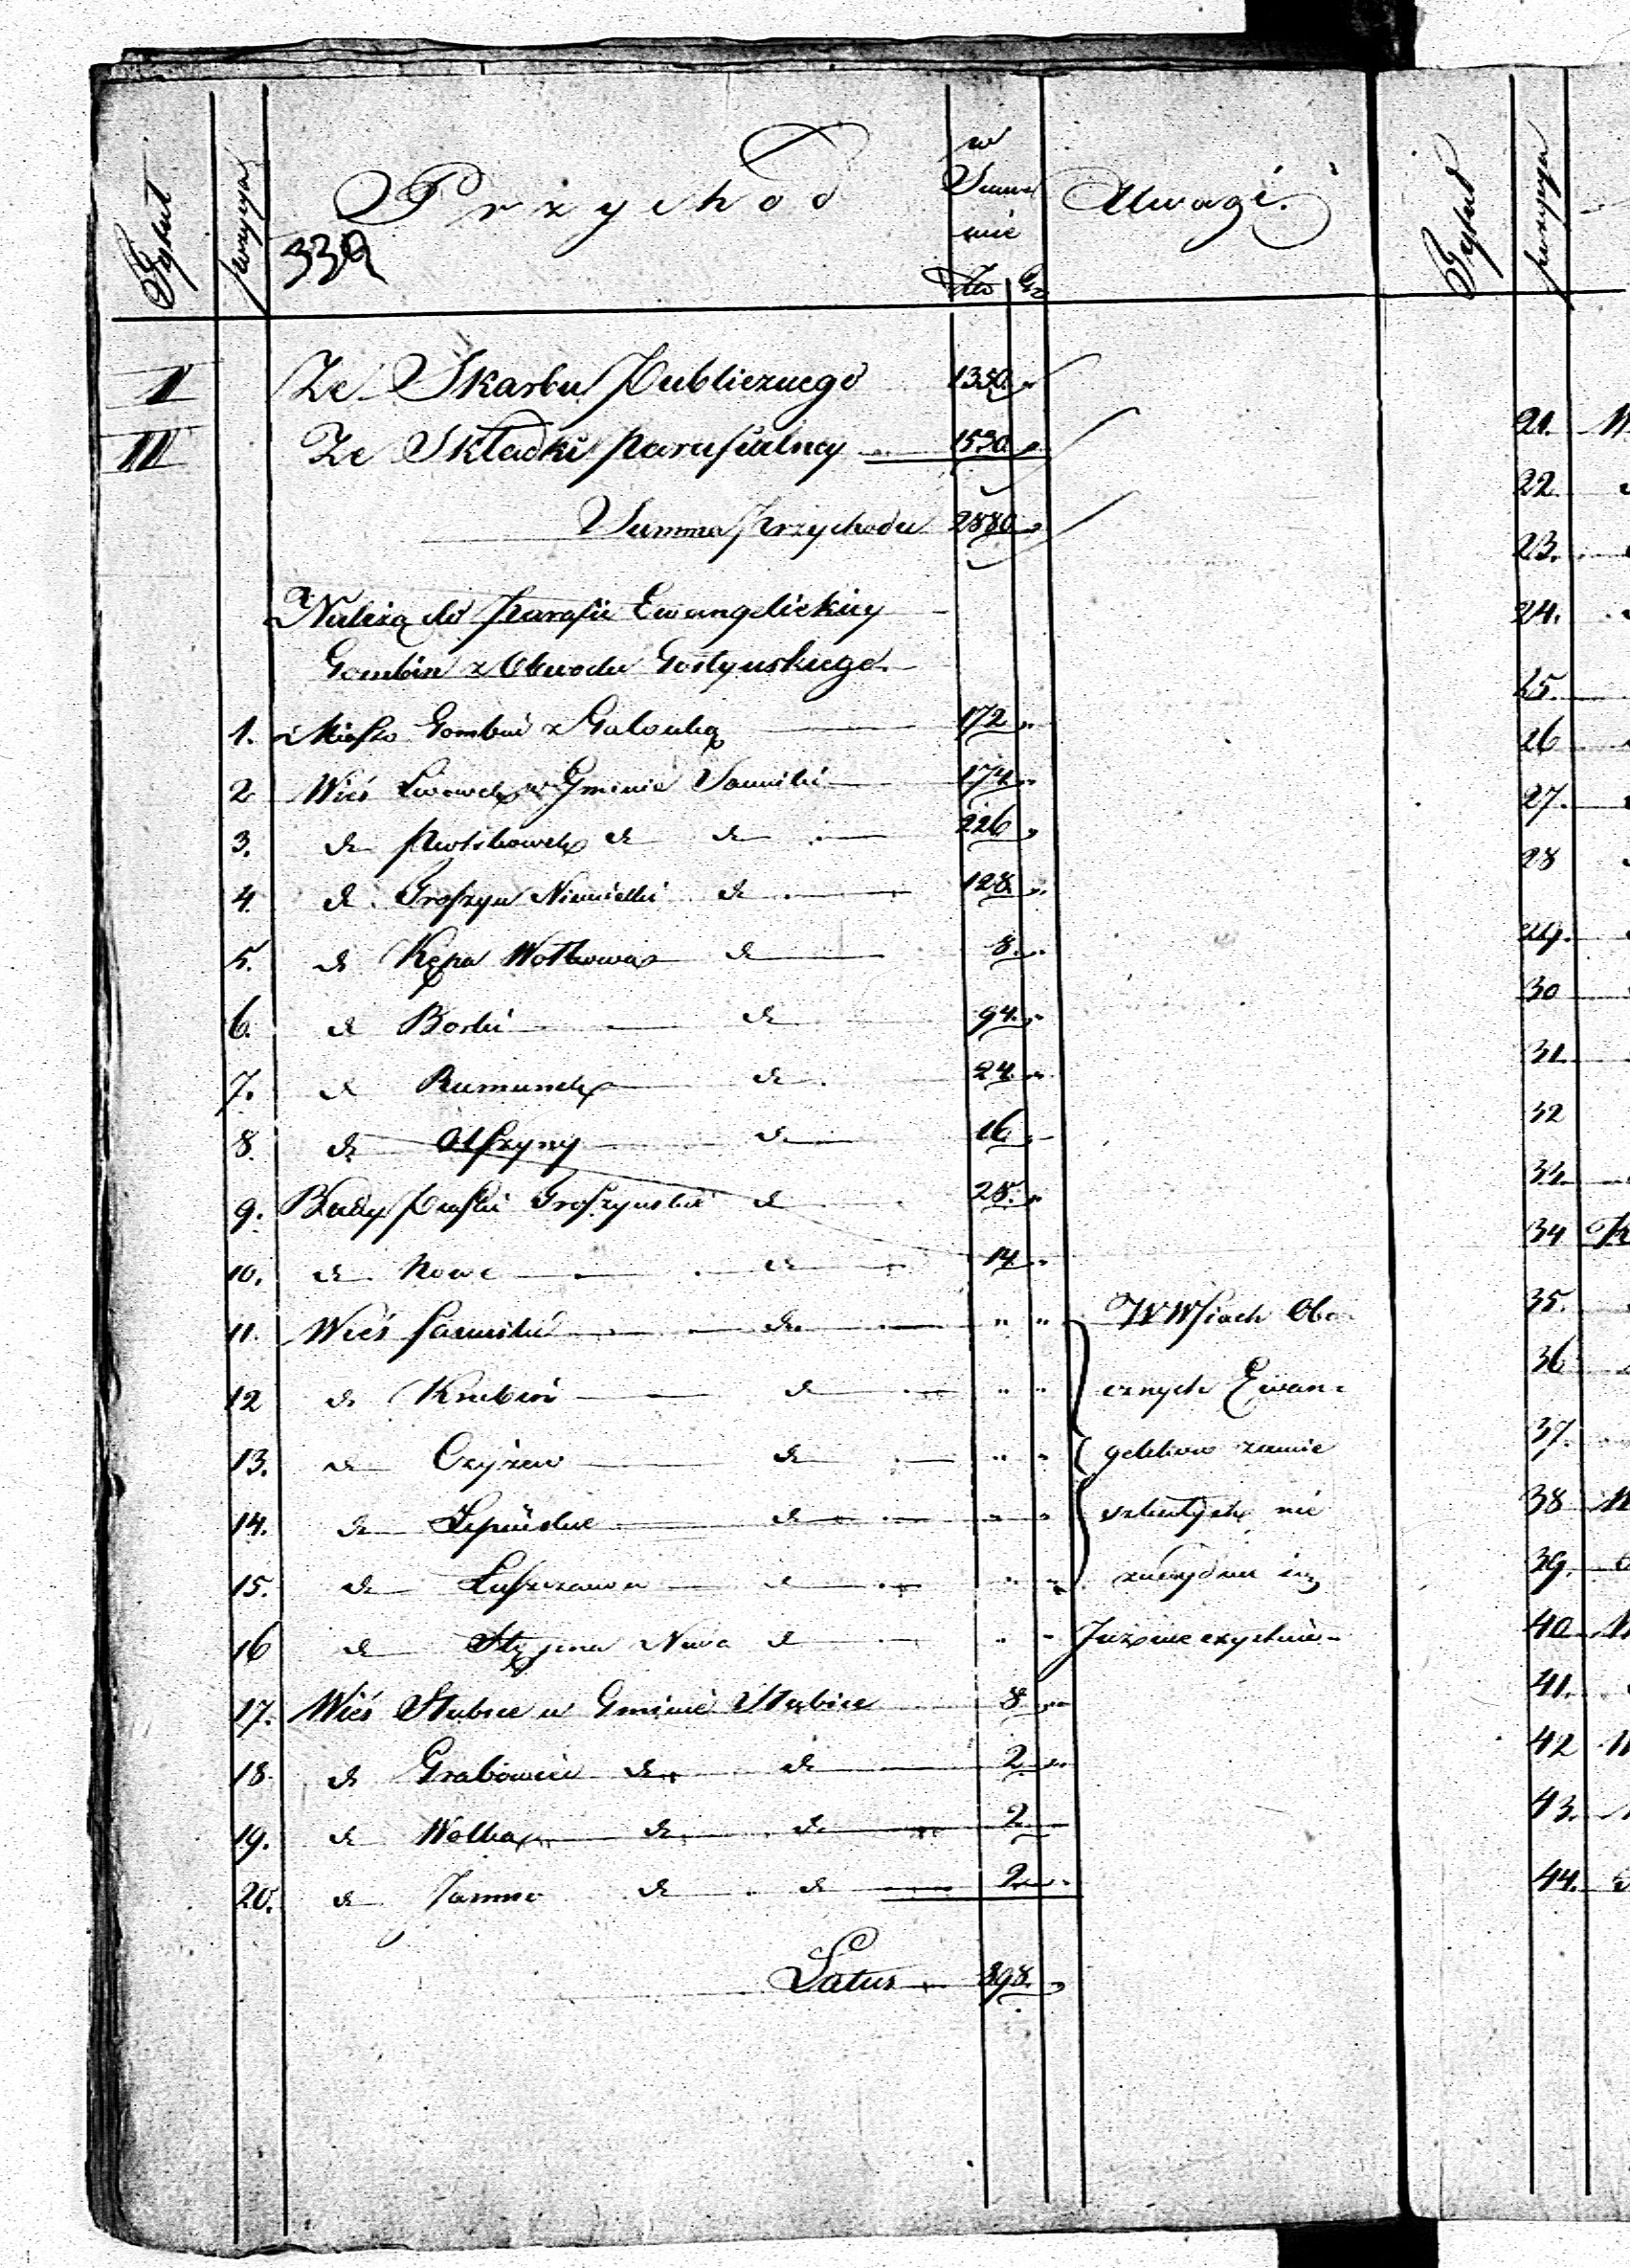 Tytuł pozycya Przychod w Summie Uwagi.
Złp Gr
339
I Ze Skarbu Publicznego 1350 "
II Ze Składki parafialney 1530 "
Summa Przychodu 2880 "
Należą do Parafii Ewangelickiey
Gombin z Obwodu Gostynskiego
1. Miasto Gombin z 172 "
2 Wieś Lwowek w Gminie Sanniki 174 "
3. do do do 226 "
4. do Troszyn Niemiecki do 128 "
5. do Kępa Wolkowa do 8 "
6. do Borki do 94 "
7. do Rumunek do 24 "
8. do Olszyny do 16 "
9. Budy Troszynskie do 28 "
10. do Nowe do 14 "
11. Wieś Sanniki do " " W Wsiach Obo
12 do Krubin do " " cznych Ewan=
13. do Czyżew do " " gelikow zamie
14. do do " " szkałych nie
15. do do " "
16 do Nowa do " "
17. Wieś Słubice w Gminie Słubice 8 "
18. do Grabowiec do do 2 "
19. do Wolka do do 2 "
20. do Jamno do do 2 "
Latus 898 "
Tytuł pozycya
21.
22
23.
24.
25.
26
27.
28
29.
30
31
32
33
34
35.
36
37.
38
39.
40
41.
42
43.
44.